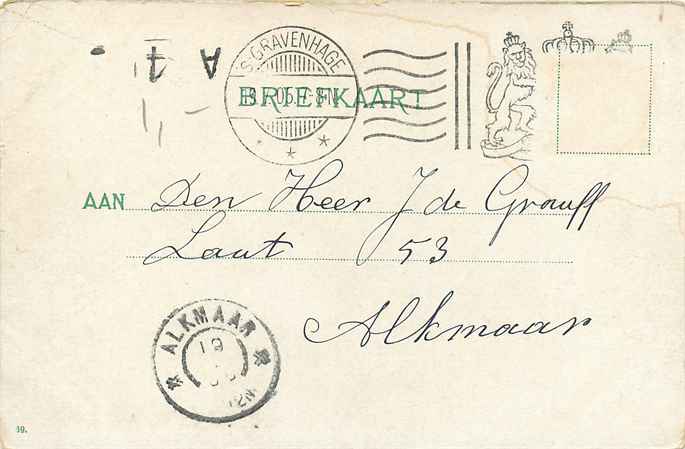 A 1
S'GRAVENHAGE
BRIEFKAART
AAN Den Heer J de Grauff
Laut 53
Alkmaar
ALKMAAR
19
12N
49.